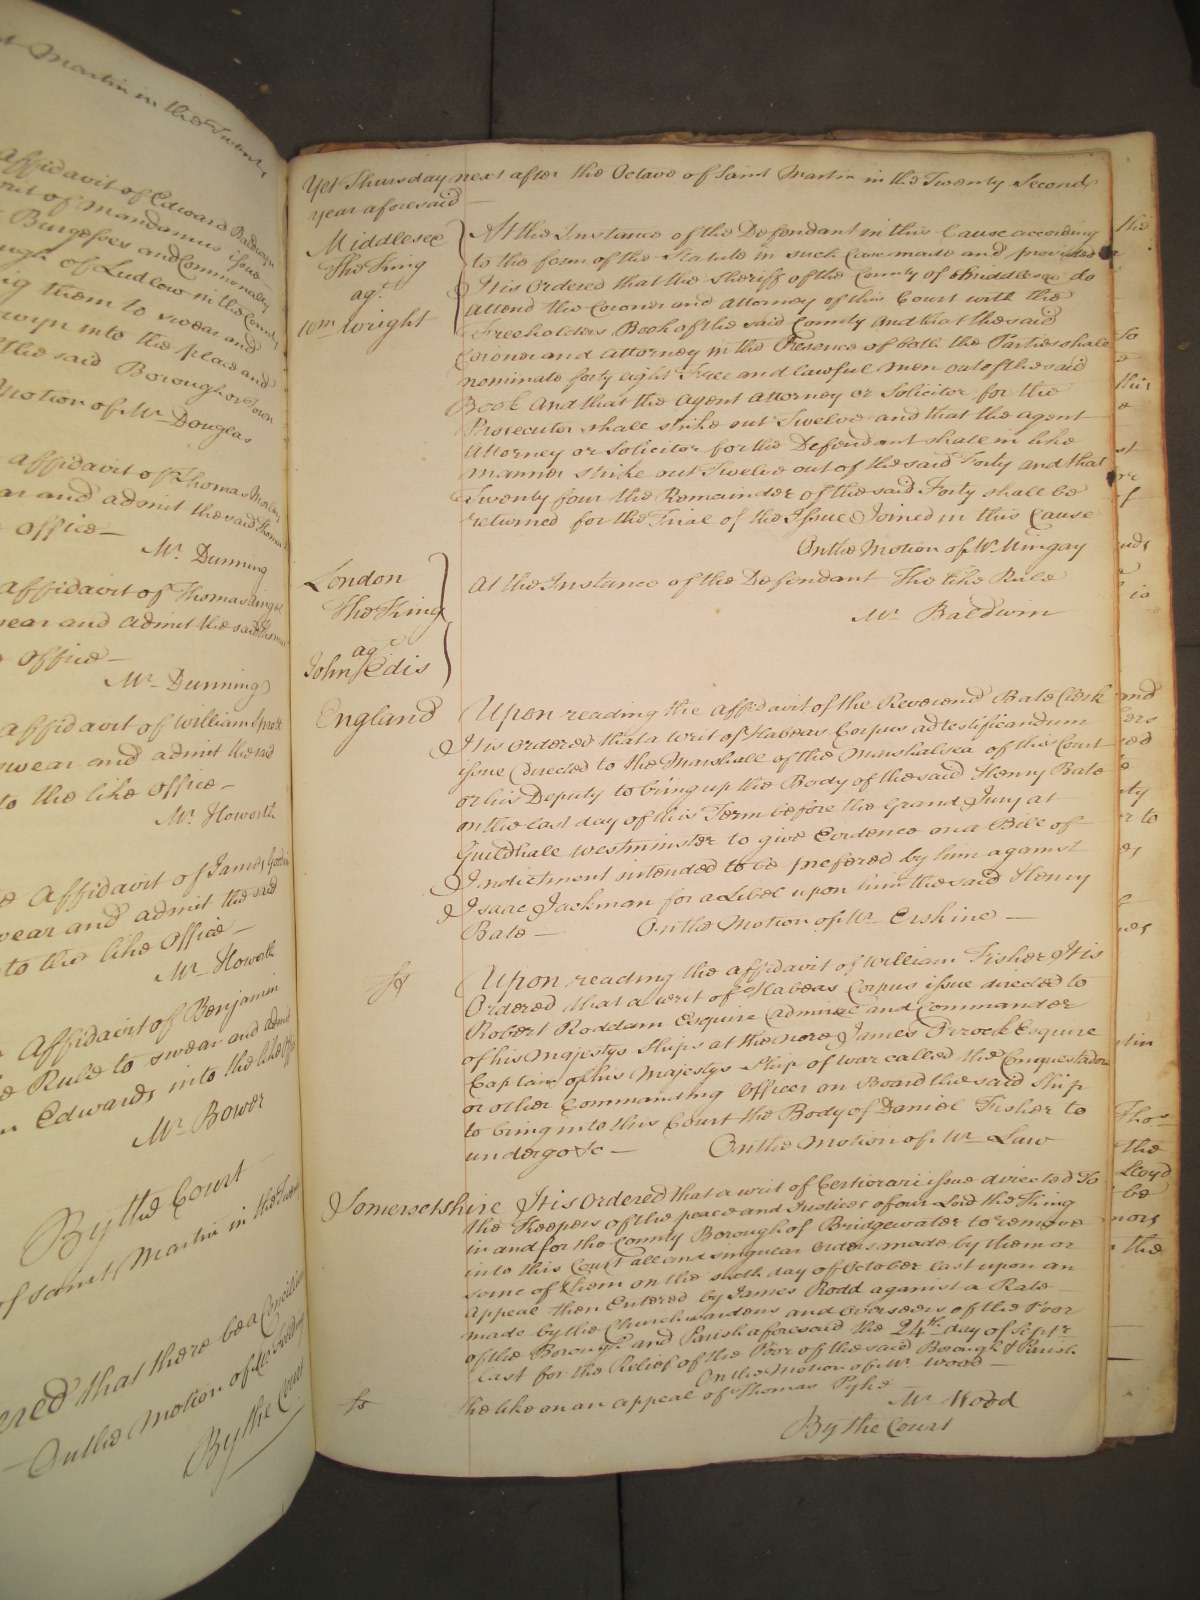 St Martin in the Twenty
Affidavit of Edward Baldwyn
Writ of Mandamus issue
Burgesses and Commonalty
of Ludlow in the County
ing them to swear and
wyn into the place and
the said Borough or Town
Motion of Mr Douglas
Affidavit of Thomas
ar and admit the said Thomas
office—
Mr. Dunning
affidavit of Thomas
wear and admit the said
office—
Mr. Dunning
affidavit of William
swear and admit the said
to the like office—
Mr. Howorth
Affidavit of James
wear and admit the said
to the like Office—
Mr. Howorth
Affidavit of Benjamin
Rule to swear and admit
Edwards into the like
Mr. Bower
By the Court
of Saint Martin in the
ered that there be a
On the Motion of
By the Court
Yet Thursday next after the Octave of Saint Martin in the Twenty Second
year aforesaid—
Middlesex
The King
agt.
Wm. Wright
At the Instance of the Defendant in this Cause according
to the form of the Statute in such Case made and provided
It is Ordered that the Sheriff of the County of Middlesex do
attend the Coroner and Attorney of this Court with the
Freeholders Book of the said County and that the said
Coroner and Attorney in the Presence of both the Parties shall
nominate forty eight Free and lawful Men out of the said
Book And that the Agent Attorney or Solicitor for the
Prosecutor shall strike out Twelve and that the agent
Attorney or Solicitor for the Defendant shall in like
manner strike out Twelve out of the said Forty and that
Twenty four the Remainder of the said Forty shall be
returned for the Trial of the Issue Joined in this Cause
On the Motion of Mr. Mingay
London
The King
agt.
John Edis
At the Instance of the Defendant The like Rule
Mr. Baldwin
England
Upon reading the affidavit of the Reverend Bate Clerk
It is Ordered that a writ of Habeas Corpus ad testificandum
issue directed to the Marshall of the Marshalsea of this Court
or his Deputy to bring up the Body of the said Henry Bate
on the last day of this Term before the Grand Jury at
Guildhall Westminster to give Evidence on a Bill of
Indictment intended to be prefered by him against
Isaac Jackman for a Libel upon him the said Henry
Bate— On the Motion of Mr. Erskine—
Upon reading the affidavit of William Fisher It is
Ordered that a writ of Habeas Corpus issue directed to
Robert Roddam Esquire Admiral and Commander
of his Majestys Ships at the nore James Esquire
Captain of his Majestys Ship of war called the Conquestadore
or other Commanding Officer on Board the said Ship
to bring into this Court the Body of Daniel Fisher to
undergo &c— On the Motion of Mr. Law
Somersetshire It is Ordered that a writ of Certiorari issue directed To
the Keepers of the peace and Justices of our Lord the King
in and for the County Borough of Bridgewater to remove
into this Court all and singular Orders made by them or
some of them on the sixth day of October last upon an
Appeal then Entered by James Rodd against a Rate
made by the Churchwardens and Overseers of the Poor
of the Borough and Parish aforesaid the 24th. day of Septr.
last for the Relief of the Poor of the said Borough & Parish
On the Motion of Mr. Wood—
The like on an appeal of Thomas Pyke
Mr. Wood
By the Court